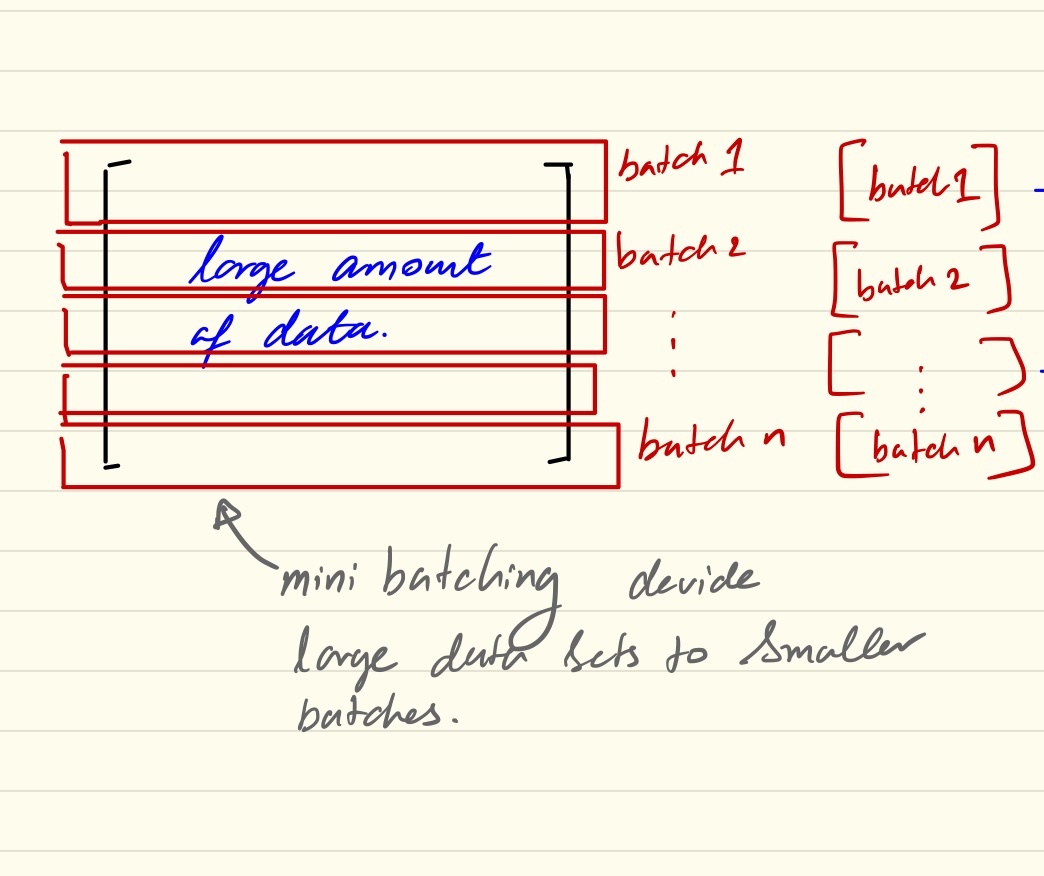 batch 1
[batch 1]
large amount
batch 2
[batch 2]
of data.
batch n
[batch n]
mini batching devide
large data sets to smaller
batches.